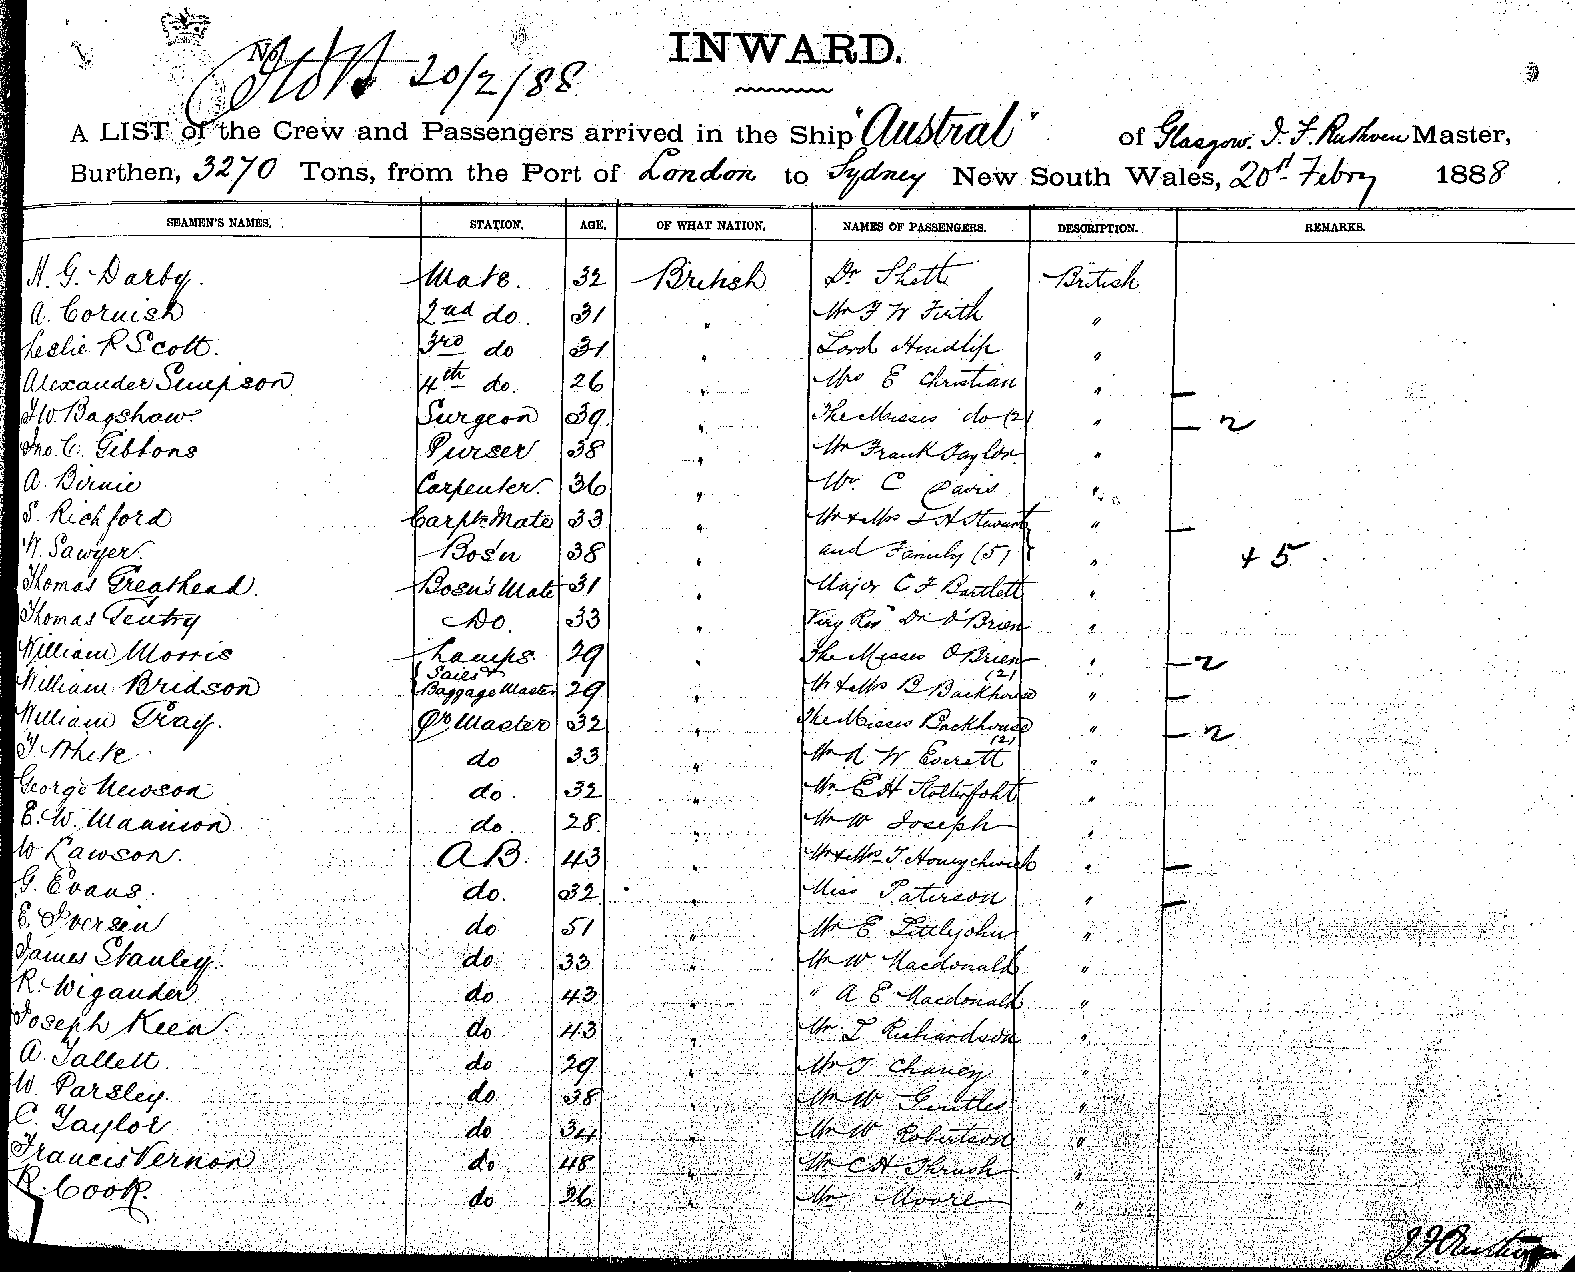 INWARD.
No. 20/2/88
A LIST of the Crew and Passengers arrived in the Ship "Austral" of Glasgow. J. F. Ruthven Master,
Burthen, 3270 Tons, from the Port of London to Sydney New South Wales, 20st Febry 1888
SEAMEN'S NAMES. STATION. AGE. OF WHAT NATION. NAMES OF PASSENGERS. DESCRIPTION. REMARKS.
H. G. Darby. Mate. 32 British Dr Shett British
A. Cornish 2nd do. 31 " Mr F W Firth "
Leslie R Scott. 3rd do 31 " Lord Hindlip "
Alexander Simpson 4th do. 26 " Mrs E Christian " —
Bagshaw. Surgeon 39 " The Misses do (2) " — 2
Jno. C. Gibbons Purser 38 " Mr Frank Taylor "
A. Birnie Carpenter. 36 " Mr. C Davis "
S. Richford Carptr Mate 33 " Mr & Mrs Stewart " —
W. Sawyer. Bosn 38 " and Family (5) " + 5
Thomas Greathead. Bosn's Mate 31 " Major C F Bartlett "
Thomas Gentry Do. 33 " Very Revd Dr O'Brien "
William Morris Lamps. 29 " The Misses O'Brien (2) " — 2
William Bridson Sails & Baggage Master 29 " Mr & Mrs B Backhouse " —
William Gray. Qr Master 32 " The Misses Backhouse (2) " — 2
T. White do 33 " Mr A W Everett "
George Newson do. 32 " Mr E H Stolterfoht "
E. W. Mannion do. 28 " Mr W Joseph "
W Lawson. AB. 43 " Mr & Mrs T. Honeychurch " —
G. Evans. do. 32 " Miss Paterson " —
E. Iversen do 51 " Mr E Littlejohn "
James Stanley. do 33 " Mr W Macdonald "
R. Wigander do 43 " " A E Macdonald "
Joseph Keen. do 43 " Mr T Richardson "
A. Tallett do 29 " Mr T Chaney "
W Parsley. do 38 " Mr W Gentles "
C. Taylor do 34 " Mr W Robertson "
Francis Vernon do 48 " Mr C H Thrush "
R. Cook. do 26 " Mr Moore "
J F Ruthven